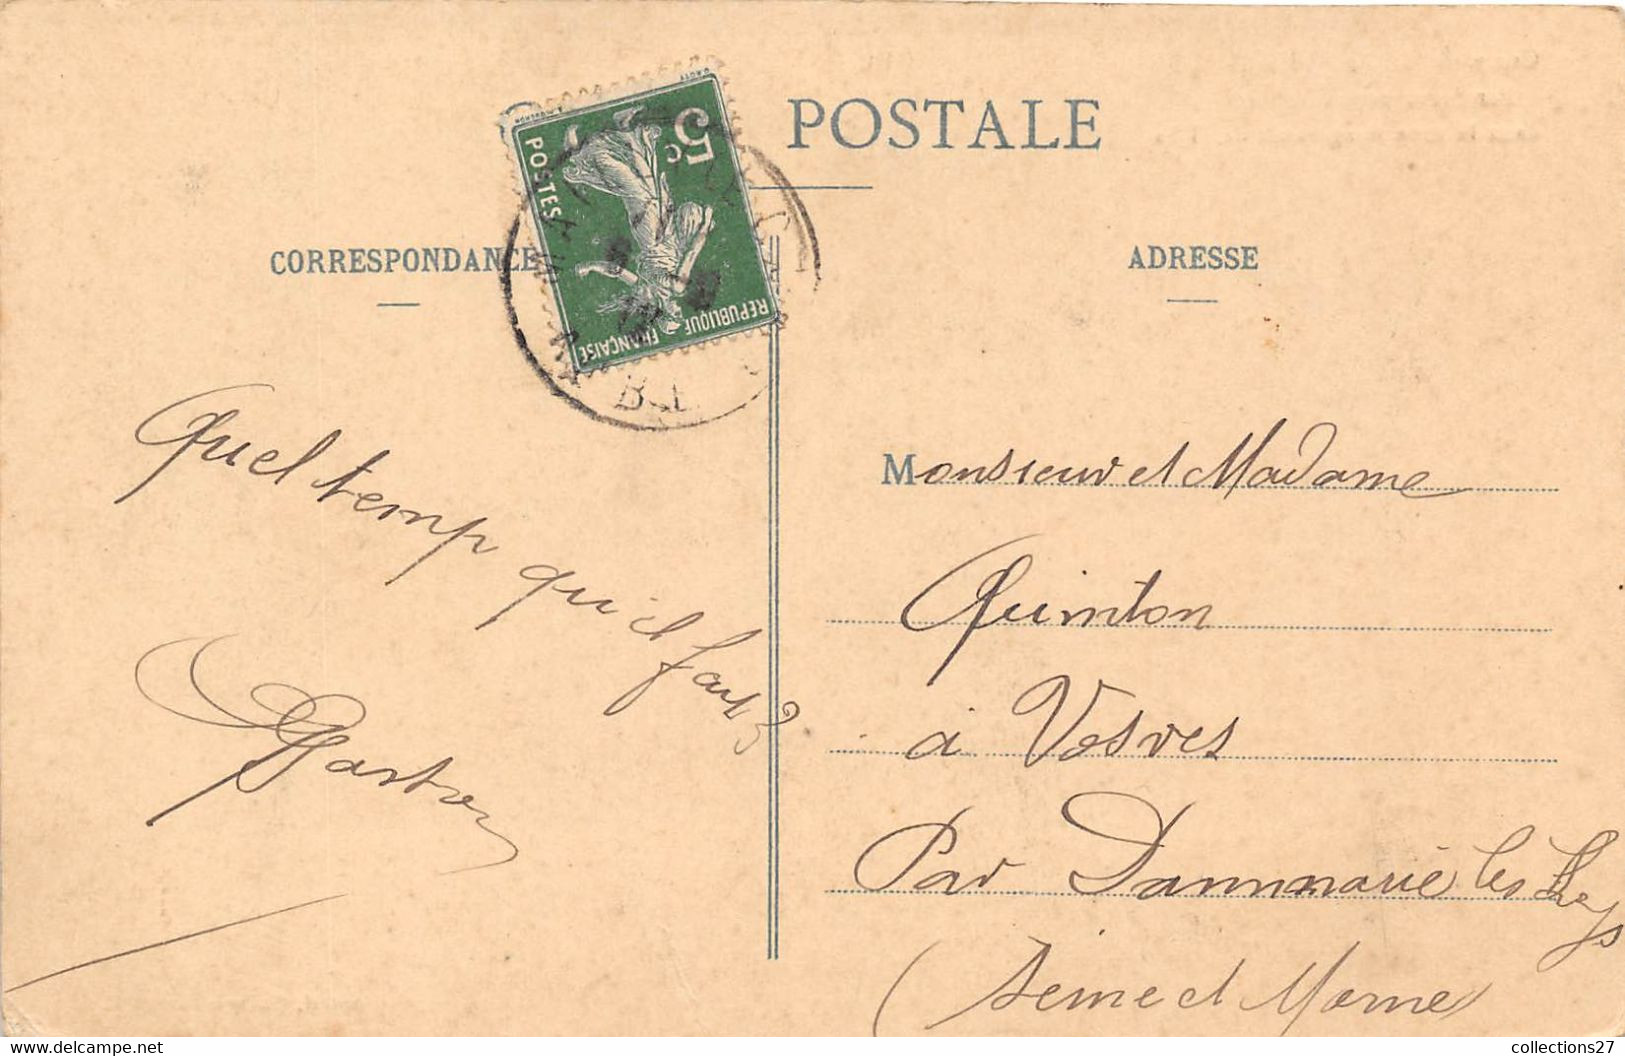 POSTALE
CORRESPONDANCE
ADRESSE
5c
POSTES
REPUBLIQUE FRANÇAISE
Quel temp qu'il fait ?
Gaston
Monsieur et Madame
Quinton
à Vosves
Par Dammarie les Lys
(Seine et Marne)
collections27